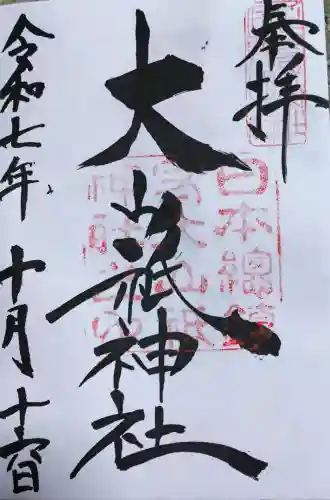 奉拝
日本總鎮
大山祇神社
令和七年十月十六日